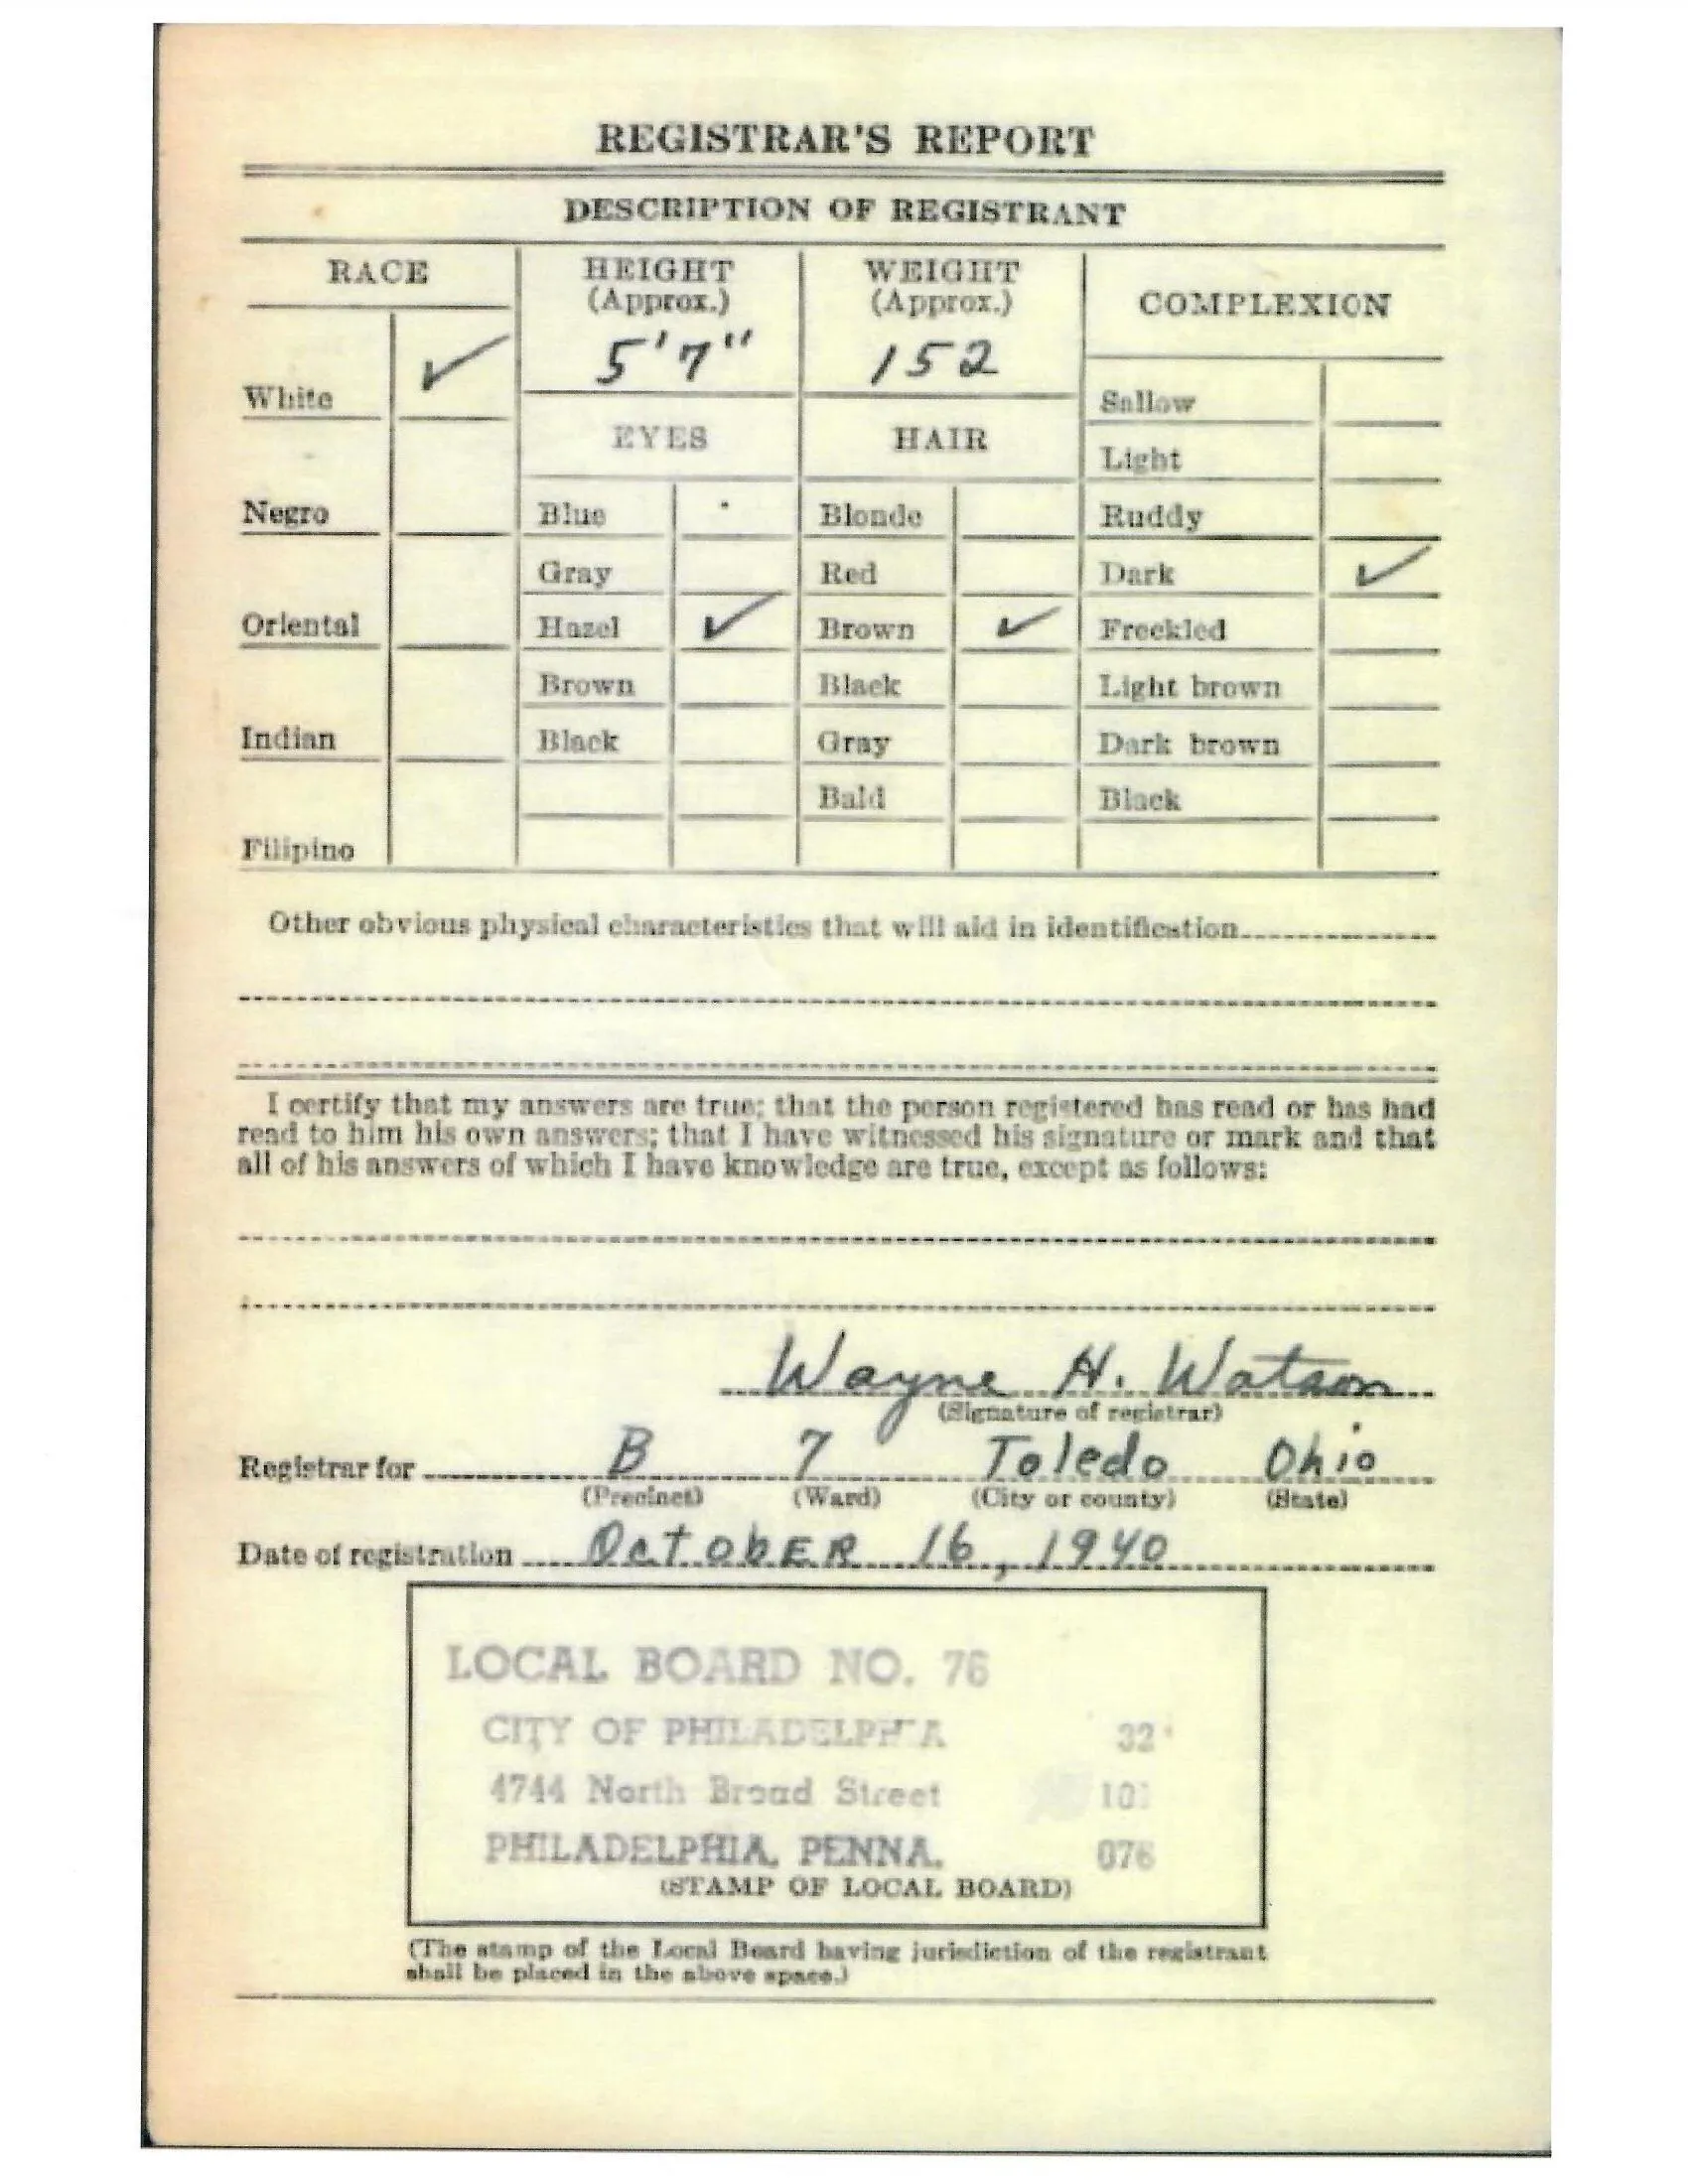 REGISTRAR'S REPORT
DESCRIPTION OF REGISTRANT
RACE
HEIGHT
(Approx.)
5'7"
WEIGHT
(Approx.)
152
COMPLEXION
White ✓
Negro
Oriental
Indian
Filipino
EYES
Blue
Gray
Hazel ✓
Brown
Black
HAIR
Blonde
Red
Brown ✓
Black
Gray
Bald
Sallow
Light
Ruddy
Dark ✓
Freckled
Light brown
Dark brown
Black
Other obvious physical characteristics that will aid in identification
I certify that my answers are true; that the person registered has read or has had
read to him his own answers; that I have witnessed his signature or mark and that
all of his answers of which I have knowledge are true, except as follows:
Wayne H. Watson
(Signature of registrar)
Registrar for B 7 Toledo Ohio
(Precinct) (Ward) (City or county) (State)
Date of registration OctobER 16, 1940
LOCAL BOARD NO. 76
CITY OF PHILADELPHIA 32
4744 North Broad Street 101
PHILADELPHIA, PENNA. 076
(STAMP OF LOCAL BOARD)
(The stamp of the Local Board having jurisdiction of the registrant
shall be placed in the above space.)